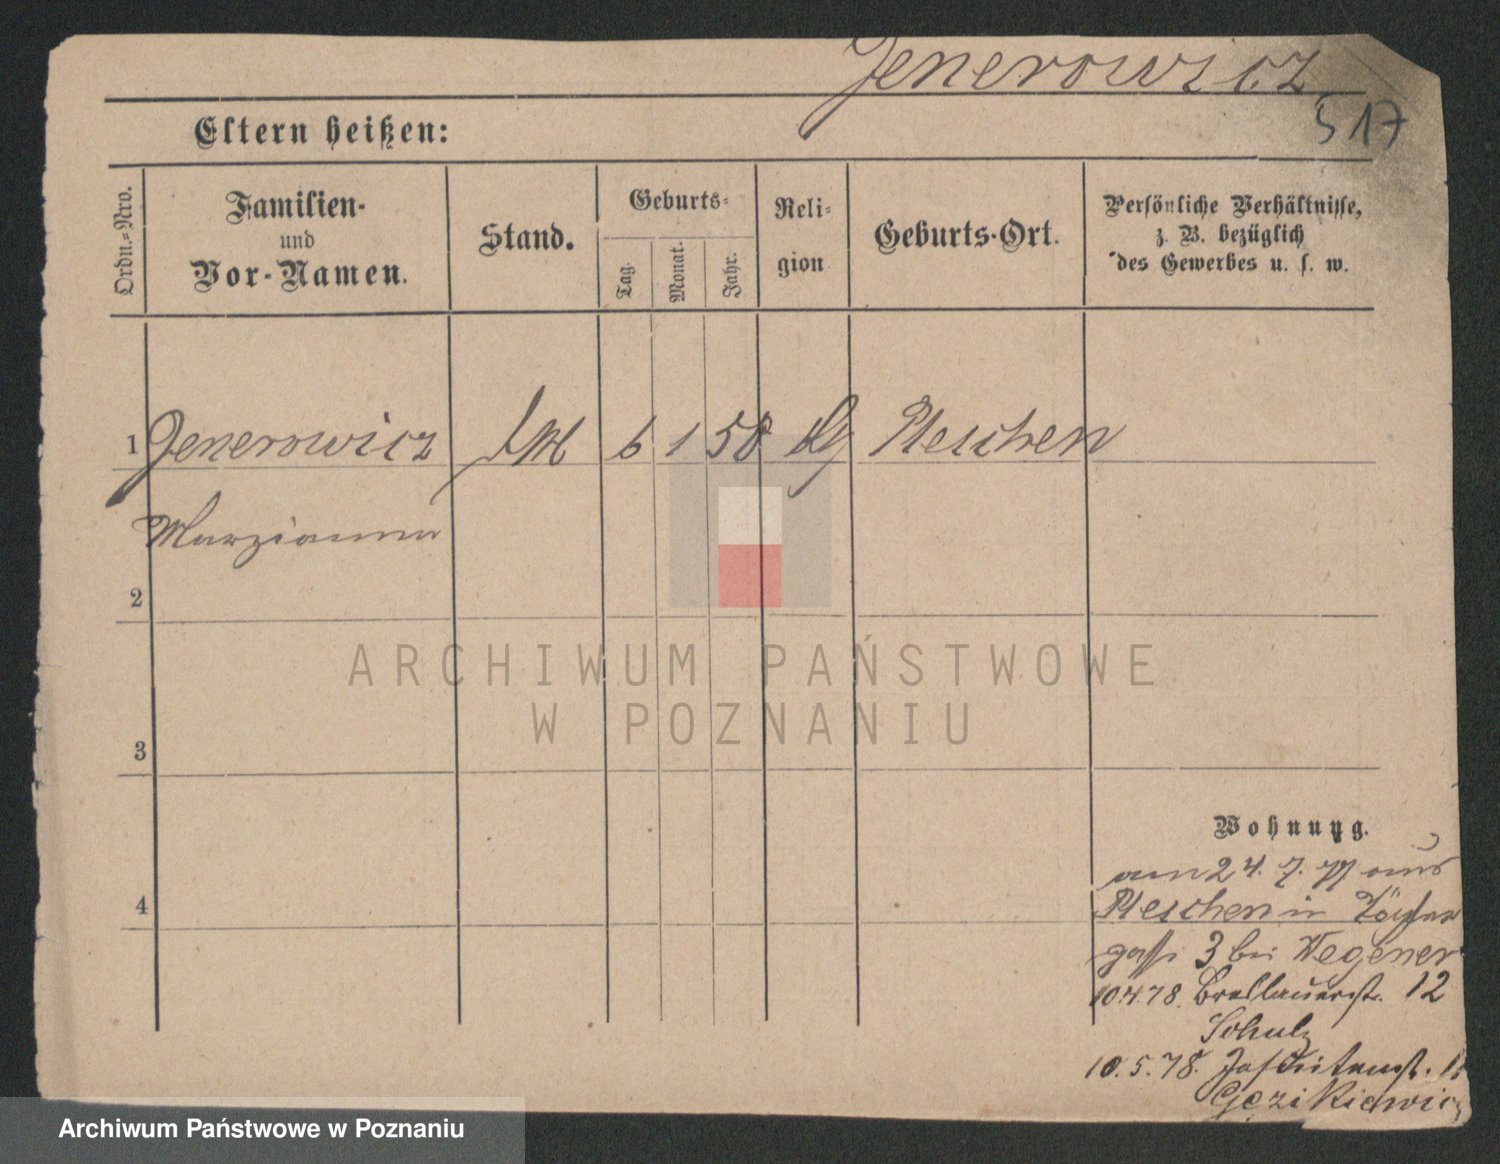 Jenerowicz
517
Eltern heißen:
Ordn.-Nro.
Familien-
und
Vor-Namen.
Stand.
Geburts-
Tag.
Monat.
Jahr.
Reli-
gion
Geburts-Ort.
Persönliche Verhältnisse,
z. B. bezüglich
des Gewerbes u. s. w.
1 Jenerowicz 6 1 58 Pleschen
Marzianna
2
ARCHIWUM PAŃSTWOWE
W POZNANIU
3
Wohnung.
am 24. 7. 77 aus
4
Pleschen in
3 bei Wegener
10.4.78. Breslauerstr. 12
Schulz
10.5.78. Jesuitenstr.
Archiwum Państwowe w Poznaniu